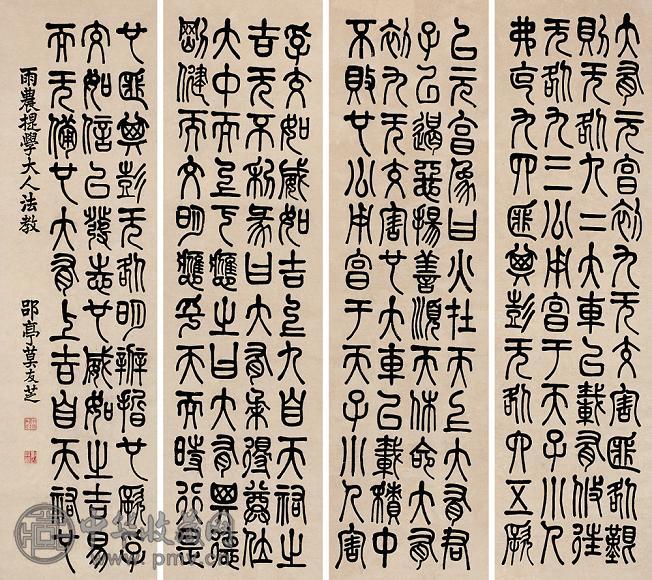 大有元亨初九无交害匪咎艱
則无咎九二大車以載有攸往
无咎九三公用亨于天子小人
弗克九四匪其彭无咎六五厥
孚交如威如吉上九自天祐之
吉无不利彖曰大有柔得尊位
大中而上下應之曰大有其德
剛健而文明應乎天而時行是
以元亨象曰火在天上大有君
子以遏惡揚善順天休命大有
初九无交害也大車以載積中
不敗也公用亨于天子小人害
也匪其彭无咎明辨晢也厥孚
交如信以發志也威如之吉易
而无備也大有上吉自天祐也
雨農提學大人法教 郘亭莫友芝
中华收藏网
www.pmv.cn